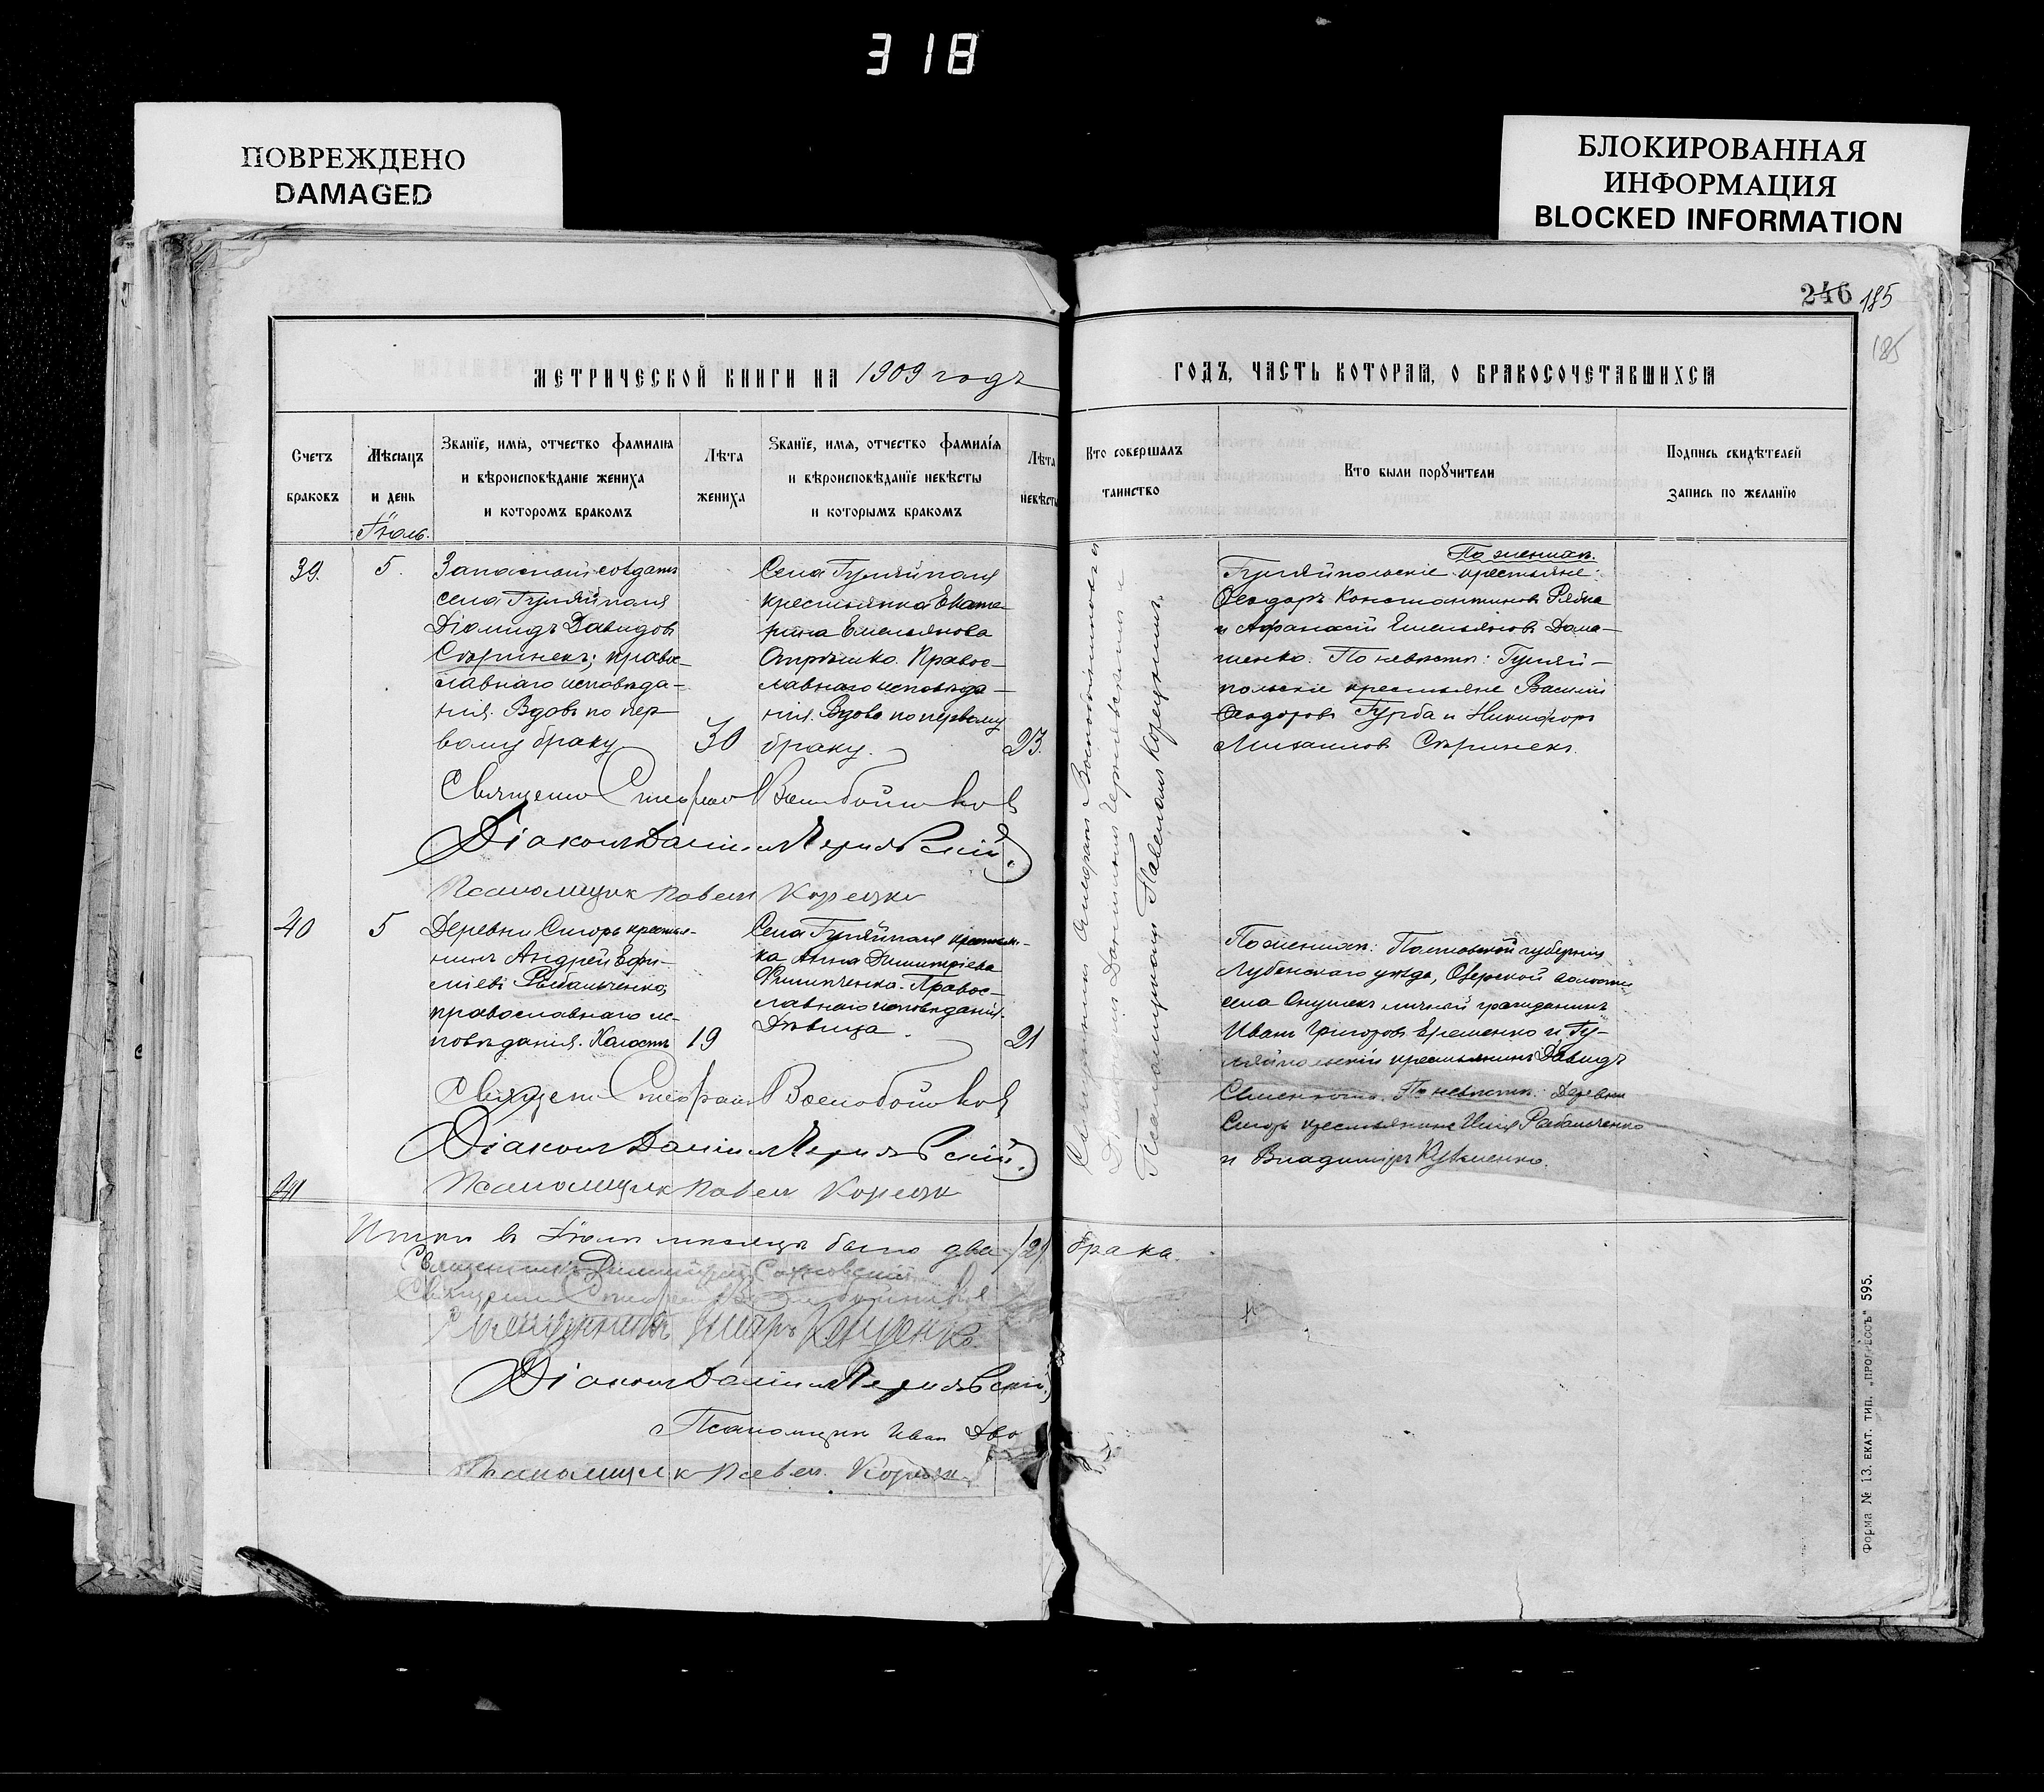 318
ПОВРЕЖДЕНО
DAMAGED
БЛОКИРОВАННАЯ
ИНФОРМАЦИЯ
BLOCKED INFORMATION
246 185
185
МЕТРИЧЕСКОЙ КНИГИ НА 1909 годъ
ГОДЪ, ЧАСТЬ КОТОРАЯ, О БРАКОСОЧЕТАВШИХСЯ
Счетъ
браковъ
Мѣсяцъ
и день
Званіе, имя, отчество фамилия
и вѣроисповѣданіе жениха
и котормъ бракомъ
Лѣта
жениха
Званіе, имя, отчество фамилія
и вѣроисповѣданіе невѣсты
и которымъ бракомъ
Лѣта
невѣсты
Кто совершалъ
таинство
Кто были поручители
Подпись свидѣтелей
запись по желанію
Іюль.
39.
5.
Запасный солдатъ
села Гуляйполя
Діомидъ Давидовъ
правос-
лавнаго исповѣда-
нія. Вдовъ по пер-
вому браку
30
Села Гуляйполя
крестьянка Екате-
рина Емельянова
Правос-
лавнаго исповѣда-
нія. Вдова по первому
браку.
23.
По женихѣ.
Гуляйпольскіе крестьяне:
Ѳеодоръ Константиновъ Рябка
и Афанасій Емельяновъ Дома-
шенко. По невѣстѣ: Гуляй-
польскіе крестьяне Василій
Ѳеодоровъ Гурба и Никифоръ
Михаиловъ
Священ Стефан Воскобойников
Діакон Даніил Чернявский.
Псаломщик Павел Корецки
40
5
Деревни крестья-
нинъ Андрей Ефи-
міевъ Рыбальченко,
православнаго ис-
повѣданія. Холостъ
19
Села Гуляйполя крестьян-
ка Анна Димитріева
Филипченко. Правос-
лавнаго исповѣданія.
Дѣвица
21
По женихѣ: Полтавской губерніи
Лубенскаго уѣзда, волости
села личный гражданинъ
Иванъ Григоровъ Еременко и Гу-
ляйпольскій крестьянинъ Давидъ
По невѣстѣ: Деревни
крестьянине Илія Рыбальченко
и Владимиръ Кузменко.
Священ Стефан Воскобойников
Діакон Даніил Чернявский.
Псаломщик Павел Корецки
Священникъ Стефанъ Воскобойниковъ и
Діаконъ Даніилъ Чернявскій и
Псаломщикъ Павелъ Корецкій.
41
Итого в Іюлѣ мѣсяцѣ было два /2/ брака.
Священникъ Димитрій Сахновскій
Священ Стефан Воскобойников
Священникъ
Діакон Даніил Чернявский.
Псаломщик Иван
Псаломщик Павел Корецки
Форма № 13. ЕКАТ. ТИП. „ПРОГРЕССЪ" 595.